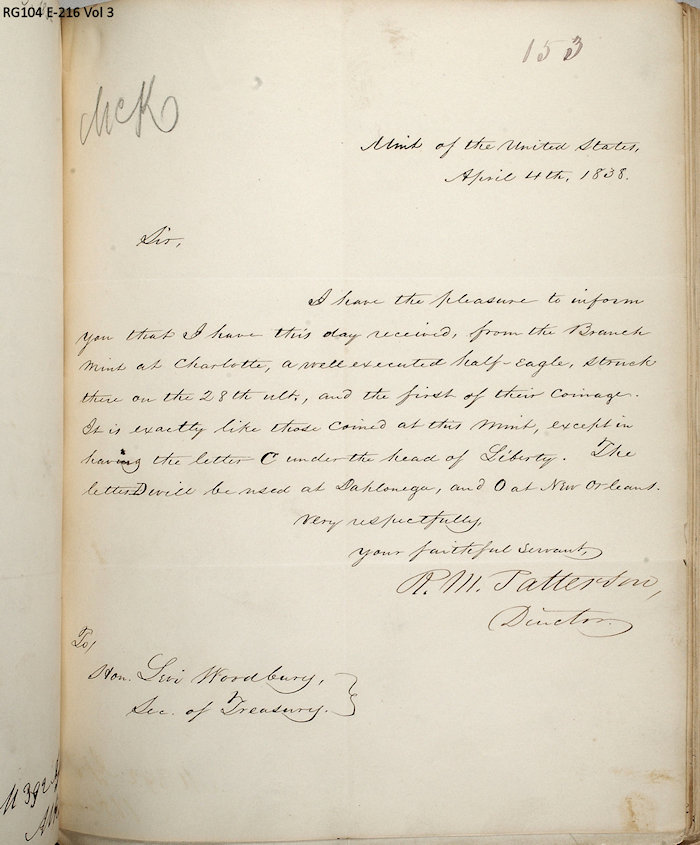 RG104 E-216 Vol 3
153
McK
Mint of the United States,
April 4th, 1838.
Sir,
I have the pleasure to inform
you that I have this day received, from the Branch
Mint at Charlotte, a well executed half-Eagle, struck
there on the 28th ult., and the first of their coinage.
It is exactly like those coined at this Mint, except in
having the letter C under the head of Liberty. The
letter D will be used at Dahlonega, and O at New Orleans.
Very respectfully,
your faithful servant,
R. M. Patterson,
Director.
To,
Hon. Levi Woodbury,
Sec. of Treasury.